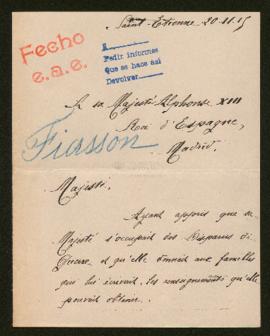 Saint-Etienne, 20-11-15
Fecho
e.a.e.
A
Pedir informes
Que se hace así
Devolver
A sa Majesté Alphonse XIII
Roi d'Espagne,
Madrid.
Fiasson
Majesté,
Ayant appris que sa
Majesté s'occupait des Disparus de
Guerre et qu'elle donnait aux familles
qui lui écrivait, les renseignements qu'elle
pouvait obtenir.